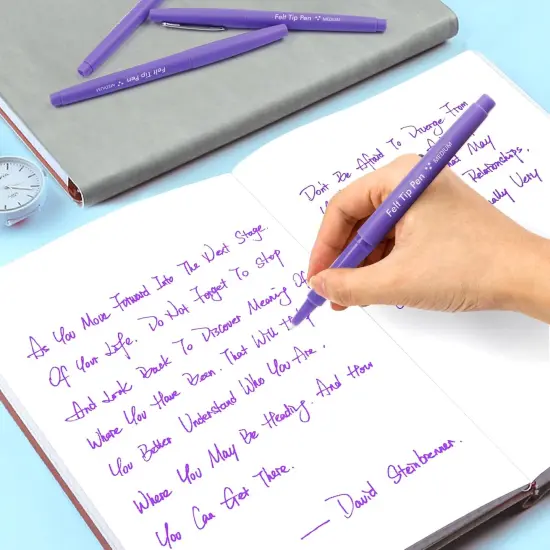 Felt Tip Pen MEDIUM
Felt Tip Pen MEDIUM
As You Move Forward Into The Next Stage
Of Your Life. Do Not Forget To Stop
And Look Back To Discover Meaning Of
Where You Have Been. That Will Help
You Better Understand Who You Are,
Where You May Be Heading. And How
You Can Get There.
— David Steinbrenner.
Don't Be Afraid To Diverge From
May
Relationships.
Very
Felt Tip Pen MEDIUM